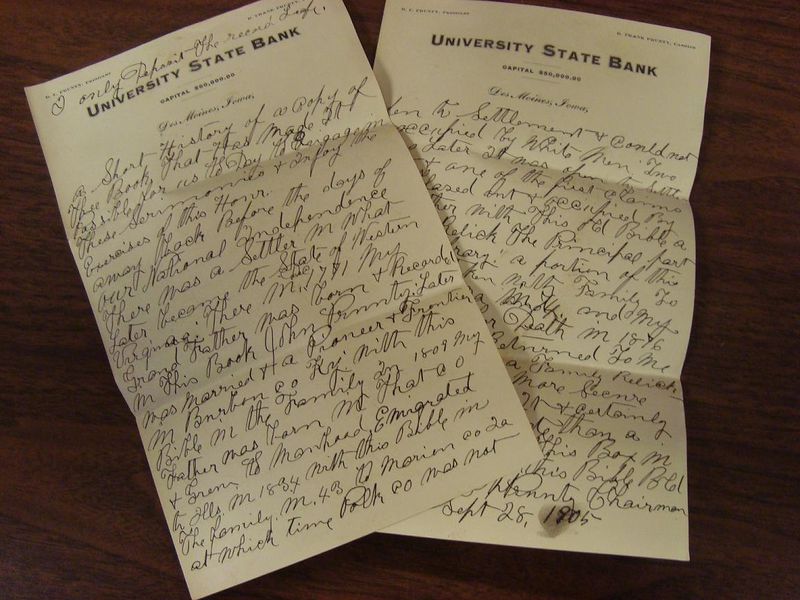 D. F. PRUNTY, PRESIDENT
D. FRANK PRUNTY, CASHIER
only Deposit the record Leaf,
UNIVERSITY STATE BANK
CAPITAL $50,000.00
Des Moines, Iowa,
A Short History of a Copy of
These Book That Has Made It
Possible for us To Day To Engage in
These Serimonies & Enjoy the
Exercises of this Hour.
away back Before the days of
our National Independence
There was a Settler in What
Later became the State of Western
Virginia. There in 1771 My
Grand Father was Born & Recorded
in This Book John Prunty. Later
was Married & a Pioneer & Frontier
in Burbon Co Ky. With this
Bible in the Family In 1809 My
Father was Born in That Co
& Grew To Manhood, Emigrated
to Ills in 1834 with this Bible in
The Family. in 43 To Marion co Ia
at which time Polk co was not
D. FRANK PRUNTY, CASHIER
UNIVERSITY STATE BANK
CAPITAL $50,000.00
Des Moines, Iowa,
to Settlement & Could not
occupied by White Men. Two
Later It was open to Settl
& one of the first claims
& occupied By
with This Old Bible a
Relick The Principal part
a portion of this
with Family To
and My
Death in 1876
Returned To Me
a Family Relick.
More Secure
& certainly
than a
This Box in
This Bible B Ed
Prunty Chairman
Sept 28, 1905